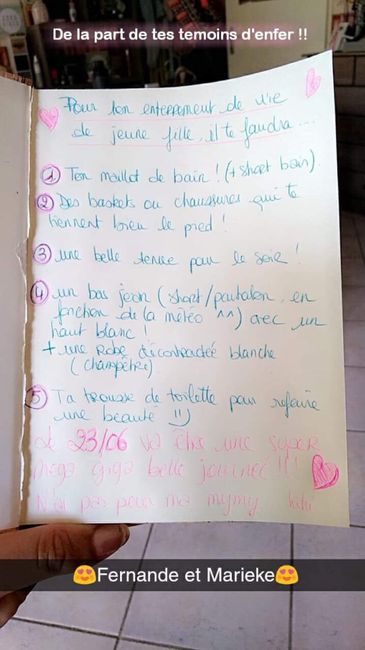 De la part de tes temoins d'enfer !!
Pour ton enterrement de vie
de jeune fille, il te faudra...
① Ton maillot de bain ! (+ short bain).
② Des baskets ou chaussures qui te
tiennent bien le pied !
③ une belle tenue pour le soir !
④ un bas jean (short/pantalon, en
fonction de la météo ^^) avec un
haut blanc !
+ une Robe décontractée blanche
(champêtre)
⑤ Ta trousse de toilette pour refaire
une beauté =)
Le 23/06 va être une super
mega giga belle journée !!!
N'ai pas peur ma mymy
😍Fernande et Marieke😍